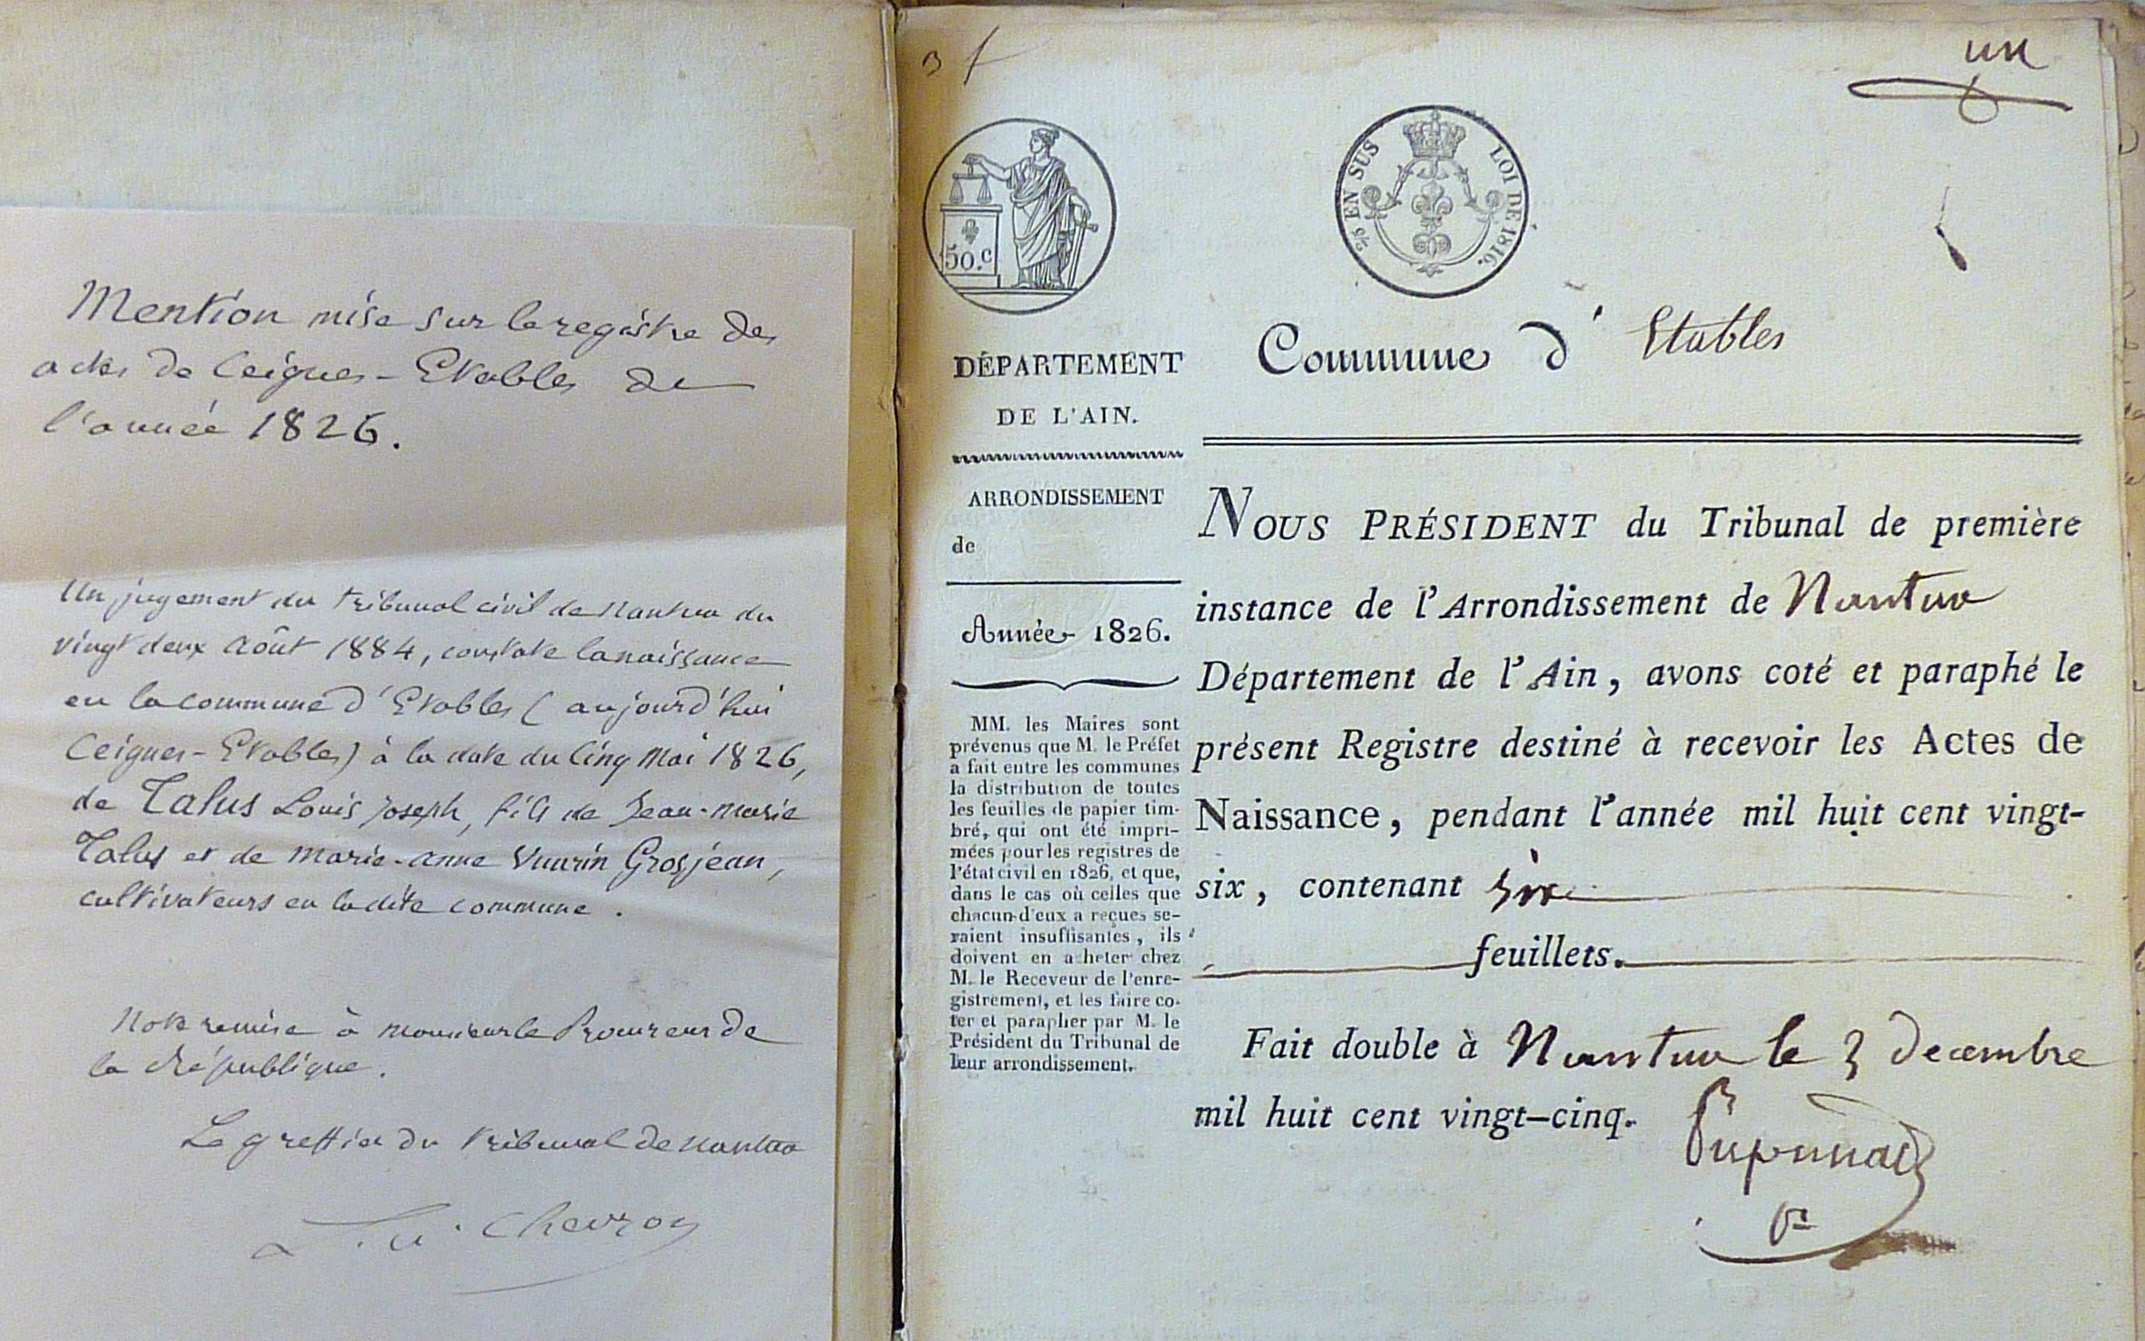 Mention mise sur le registre des
actes de Ceignes-Etables de
l'année 1826.
Un jugement du tribunal civil de Nantua du
vingt deux Août 1884, constate la naissance
en la commune d'Etables (aujourd'hui
Ceignes-Etables) à la date du Cinq Mai 1826,
de Talus Louis Joseph, fils de Jean-Marie
Talus et de Marie-Anne Vuarin Grosjean,
cultivateurs en ladite commune.
Note remise à Monsieur le Procureur de
la République.
Le greffier du tribunal de Nantua
Chevron
un
50.c
EN SUS
LOI DE 1816.
DÉPARTEMENT
DE L'AIN.
ARRONDISSEMENT
de
Année 1826.
MM. les Maires sont
prévenus que M. le Préfet
a fait entre les communes
la distribution de toutes
les feuilles de papier tim-
bré, qui ont été impri-
mées pour les registres de
l'état civil en 1826, et que,
dans le cas où celles que
chacun d'eux a reçues se-
raient insuffisantes, ils
doivent en acheter chez
M. le Receveur de l'enre-
gistrement, et les faire co-
ter et parapher par M. le
Président du Tribunal de
leur arrondissement.
Commune d' Etables
NOUS PRÉSIDENT du Tribunal de première
instance de l'Arrondissement de Nantua
Département de l'Ain, avons coté et paraphé le
présent Registre destiné à recevoir les Actes de
Naissance, pendant l'année mil huit cent vingt-
six, contenant six
feuillets.
Fait double à Nantua le 3 decembre
mil huit cent vingt-cinq.